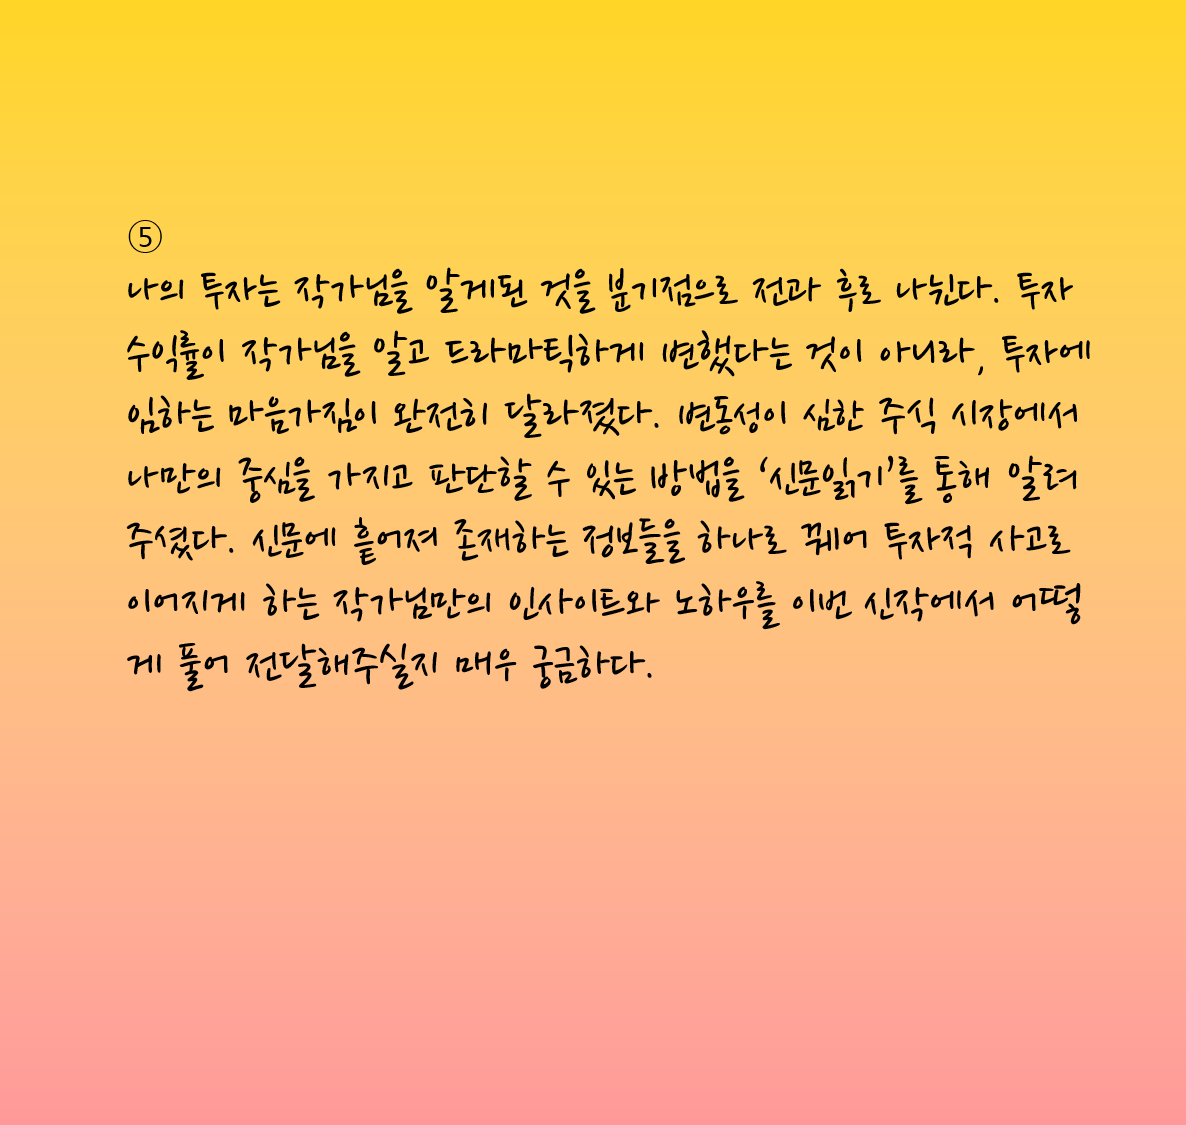 ⑤
나의 투자는 작가님을 알게된 것을 분기점으로 전과 후로 나뉜다. 투자
수익률이 작가님을 알고 드라마틱하게 변했다는 것이 아니라, 투자에
임하는 마음가짐이 완전히 달라졌다. 변동성이 심한 주식 시장에서
나만의 중심을 가지고 판단할 수 있는 방법을 ‘신문읽기’를 통해 알려
주셨다. 신문에 흩어져 존재하는 정보들을 하나로 꿰어 투자적 사고로
이어지게 하는 작가님만의 인사이트와 노하우를 이번 신작에서 어떻
게 풀어 전달해주실지 매우 궁금하다.